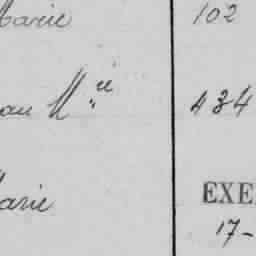 Marie 102
au M.ie 434
Marie EXE
17-